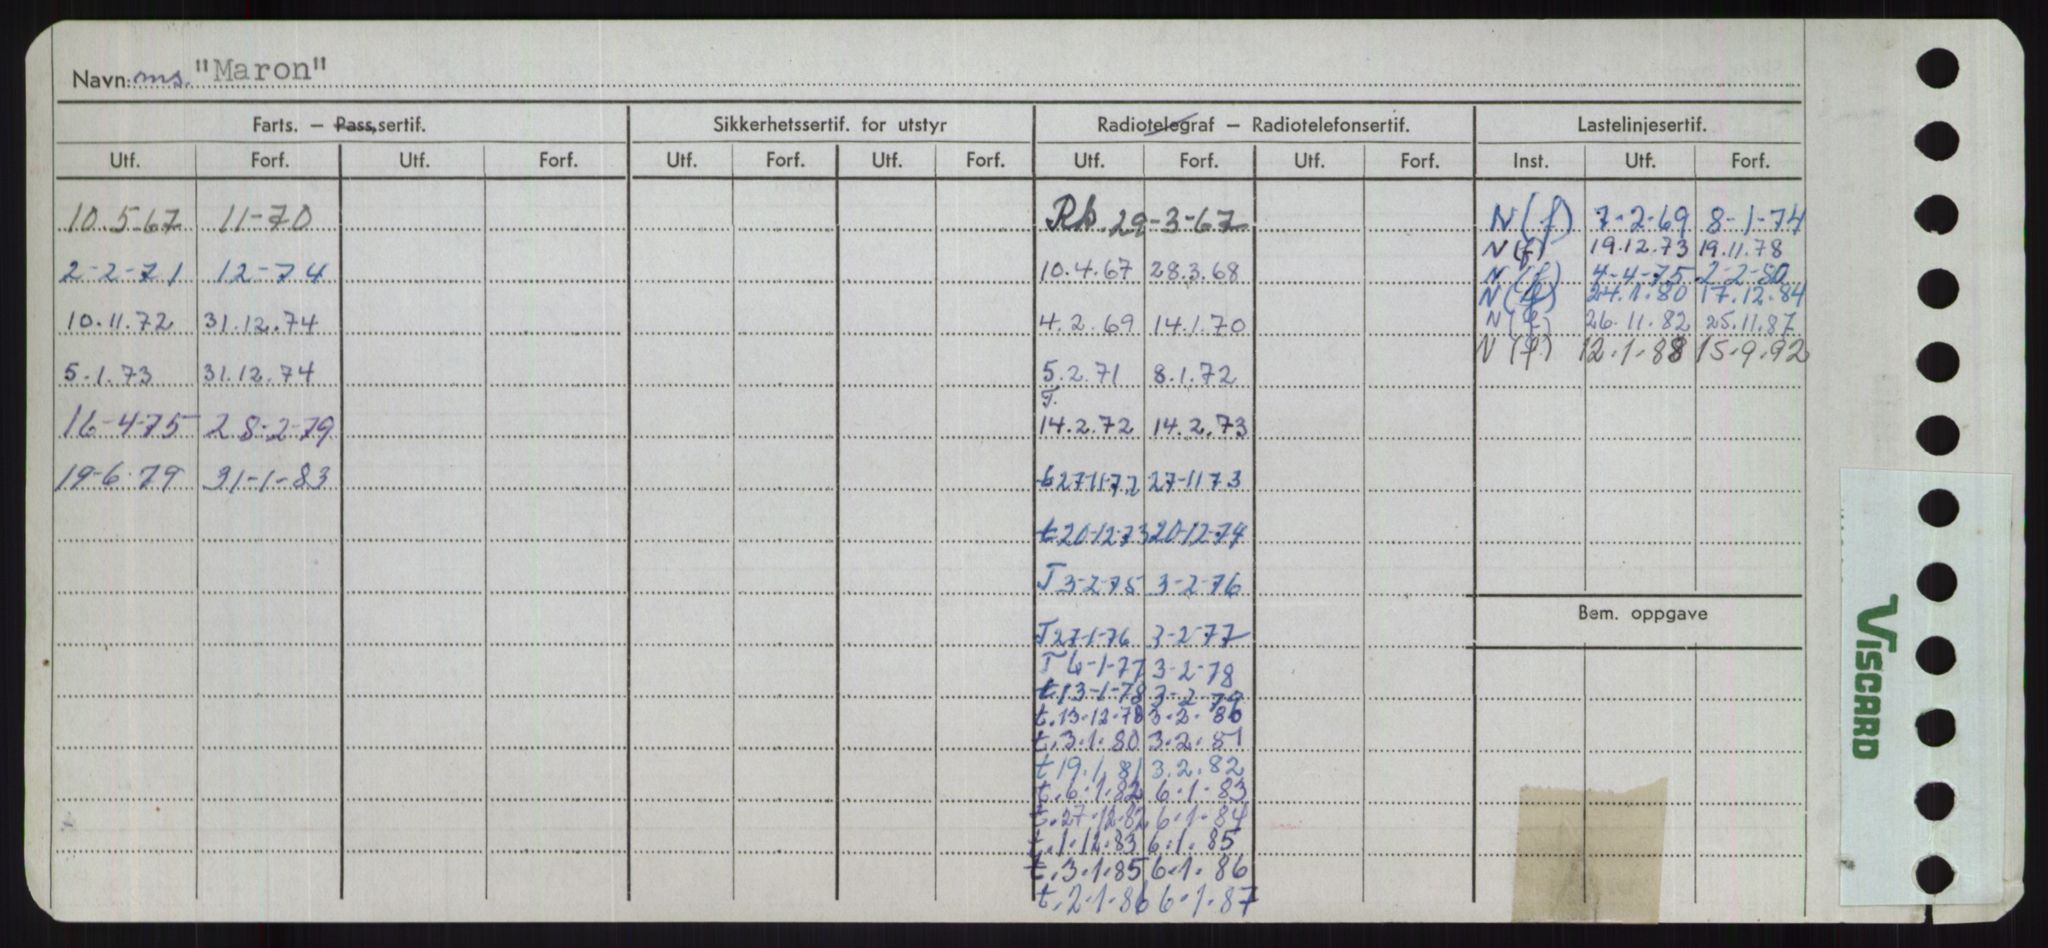 Navn: ms. "Maron"
Farts. – Pass.sertif. Sikkerhetssertif. for utstyr Radiotelegraf – Radiotelefonsertif. Lastelinjesertif.
Utf. Forf. Utf. Forf. Utf. Forf. Utf. Forf. Utf. Forf. Utf. Forf. Inst. Utf. Forf.
10.5-67 11-70
2-2-71 12-74
10.11.72 31.12.74
5.1.73 31.12.74
16-4-75 28-2-79
19-6-79 31-1-83
29-3-67
10.4.67 28.3.68
4.2.69 14.1.70
5.2.71 8.1.72
T.
14.2.72 14.2.73
t 27-11-72 27-11 73
t 20-12-73 20-12-74
T 3-2-75 3-2-76
T 27-1-76 3-2-77
T 6-1-77 3-2-78
t.13-1-78 3-2-79
t.13-12-78 3.2.80
t.3.1.80 3.2.81
t 19.1.81 3.2.82
t.6.1.82 6.1.83
t.27.12.82 6.1.84
t.1.12.83 6.1.85
t.3.1.85 6.1.86
t.2.1.86 6.1.87
N(f) 7-2-69 8-1-74
N(f) 19.12.73 19.11.78
N(f) 4-4-75 2-2-80
N(f) 24.1.80 17.12.84
N(f) 26.11.82 25.11.87
N(f) 12.1.88 15.9.92
Bem. oppgave
VISCARD